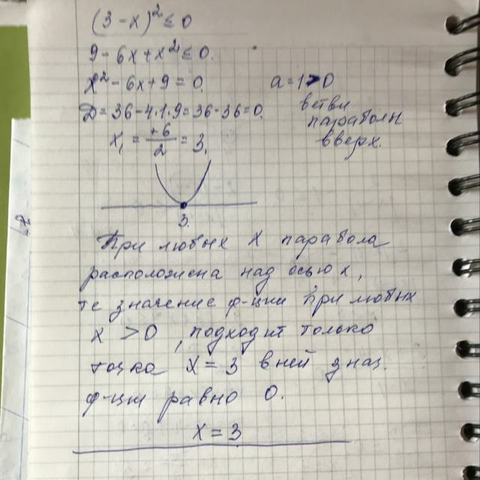 (3-x)² ≤ 0
9-6x+x² ≤ 0.
x²-6x+9=0.
a=1>0
ветви
параболы
вверх.
Д=36-4·1·9=36-36=0.
x₁ = +6/2 = 3.
3.
При любых x парабола
расположена над осью x,
те значение ф-ции при любых
x > 0, подходит только
точка x=3 в ней знач.
ф-ции равно 0.
x=3